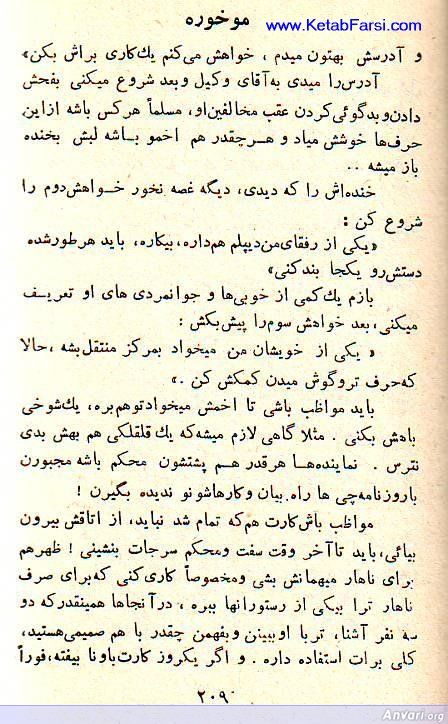 www.KetabFarsi.com
موخوره
و آدرسش بهتون میدم ، خواهش می‌کنم یك‌کاری براش بکن»
آدرس‌را میدی به‌آقای وکیل وبعد شروع میکنی بفحش
دادن‌وبدگوئی‌کردن عقب مخالفین‌او، مسلماً هرکس باشه ازاین
حرف‌ها خوشش میاد و هــرچقدر هم اخمو بــاشه لبش بخنده
باز میشه . .
خنده‌اش را که دیدی، دیگه غصه نخور خــواهش‌دوم را
شروع کن :
«یکی از رفقای‌من‌دیپلم هم‌داره، بیکاره، باید هرطورشده
دستش‌رو یکجا بندکنی»
بازم یك‌کمی از خوبی‌ها و جوانمردی های او تعریــف
میکنی، بعد خواهش سوم‌را پیش‌بکش :
« یکی از خویشان من میخواد بمرکز منتقل‌بشه ، حالا
که‌حرف تروگوش میدن کمکش کن .»
باید مواظب باشی تا اخمش میخوادتوهم‌بره، یك‌شوخی
باهش بکنی . مثلا گاهی لازم میشه‌که یك قلقلکی هم بهش بدی
نترس . نماینده‌هــا هرقدر هــم پشتشون محکم باشه مجبورن
باروزنامه‌چی ها راه‌بیان وکارهاشونو ندیده بگیرن !
مواظب باش‌کارت هم‌که تمام شد نباید، از اتاقش بیرون
بیائی، باید تاآخر وقت سفت ومحکم سرجات بنشینی ! ظهرهم
برای ناهار میهمانش بشی ومخصوصاً کاری‌کنی که‌برای صرف
ناهار ترا بیکی از رستورانها ببره ، درآنجاها همینقدرکه دو
سه نفر آشنا، تربا اوببینن وبفهمن چقدر با هم صمیمی‌هستید،
کلی برات استفاده داره . و اگر یکروز کارت‌باونا بیفته، فوراً
۲۰۹
Anvari.org